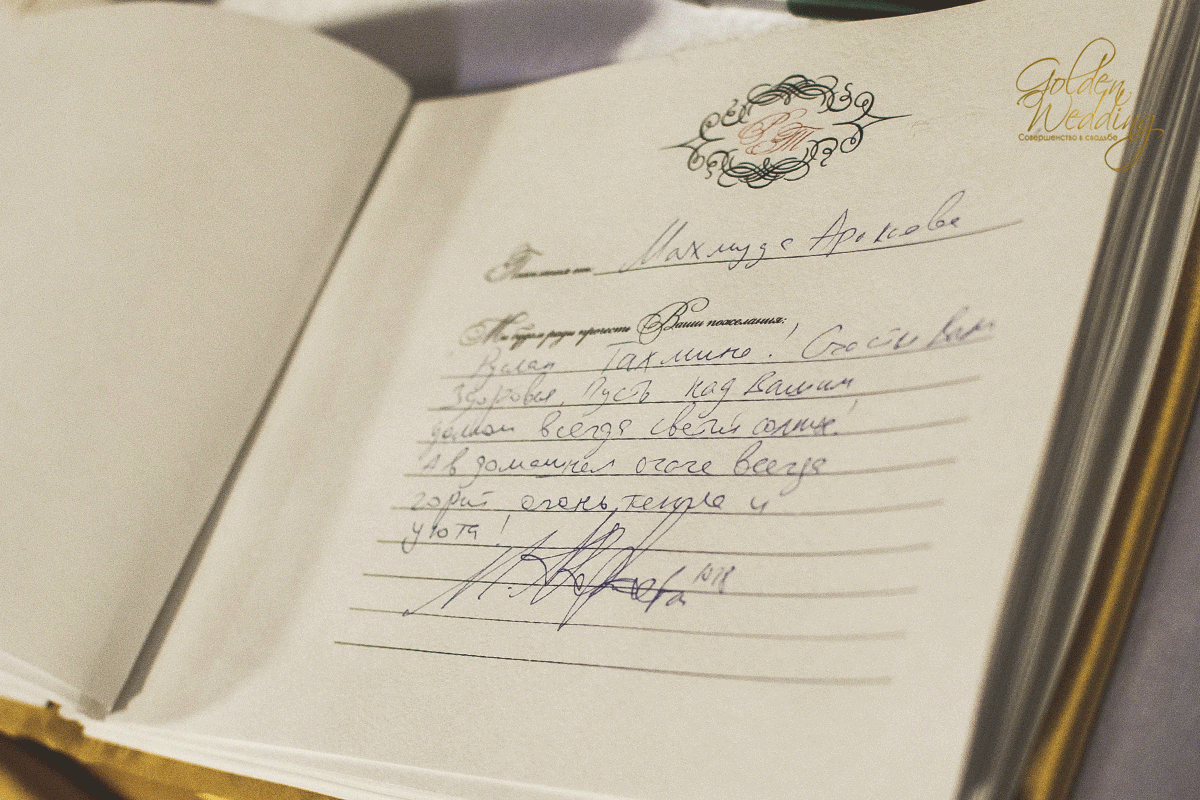 Golden
Wedding
Совершенство в свадьбе
РТ
Махмуда
Мы будем рады прочесть Ваши пожелания:
Руслан Тахмина! Счастья Вам
Здоровья, Пусть над Вашим
домом всегда светит солнце!
А в домашнем очаге всегда
горит огонь тепла и
уюта!